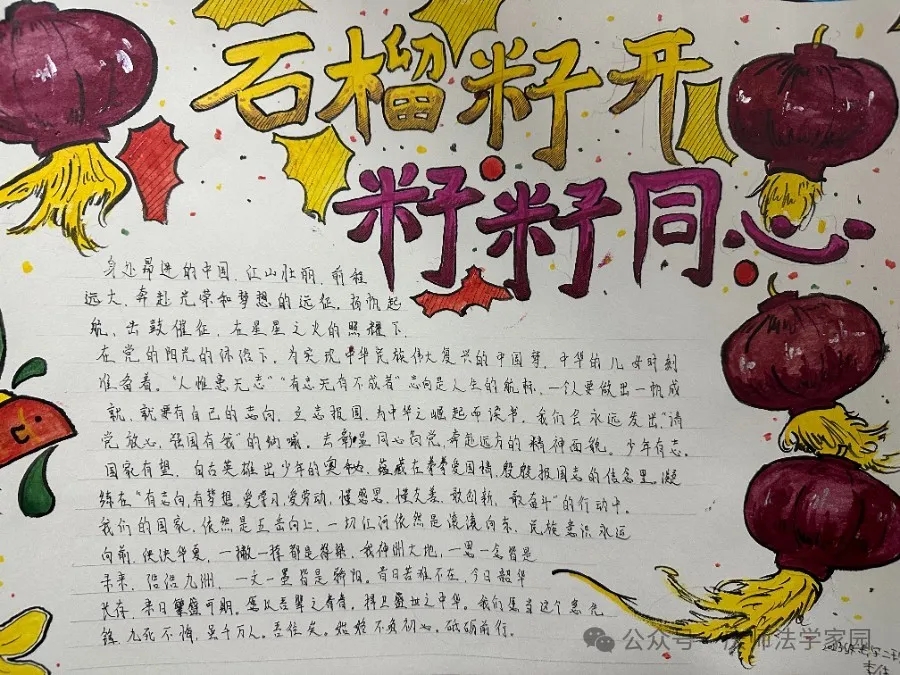 石榴籽开
籽籽同心
身处昂进的中国，江山壮丽，前程
远大，奔赴光荣和梦想的远征，扬帆起
航，击鼓催征，在星星之火的照耀下，
在党的阳光的沐浴下，为实现中华民族伟大复兴的中国梦，中华的儿女时刻
准备着。“人惟患无志”“有志无有不成者”志向是人生的航标，一个人要做出一帆成
就，就要有自己的志向，立志报国，为中华之崛起而读书。我们会永远发出“请
党放心，强国有我”的呐喊。去彰显同心向党，奔赴远方的精神面貌。少年有志，
国家有望，自古英雄出少年的奥秘，蕴藏在拳拳爱国情，殷殷报国志的信念里，凝
练在“有志向，有梦想，爱学习，爱劳动，懂感恩，懂友善，敢创新，敢奋斗”的行动中。
我们的国家，依然是五岳向上，一切江河依然是滚滚向东，民族意识永远
向前，泱泱华夏，一撇一捺都是脊梁，我神州大地，一思一念皆是
未来，浩浩九洲，一文一墨皆是骄阳。昔日苦难不在，今日韶华
长存，来日盛可期，愿以吾辈之青春，捍卫盛世之中华。我们愿当这个
九死不悔，虽千万人，吾往矣。始终不负初心，砥砺前行。
公众号 · 法学家园